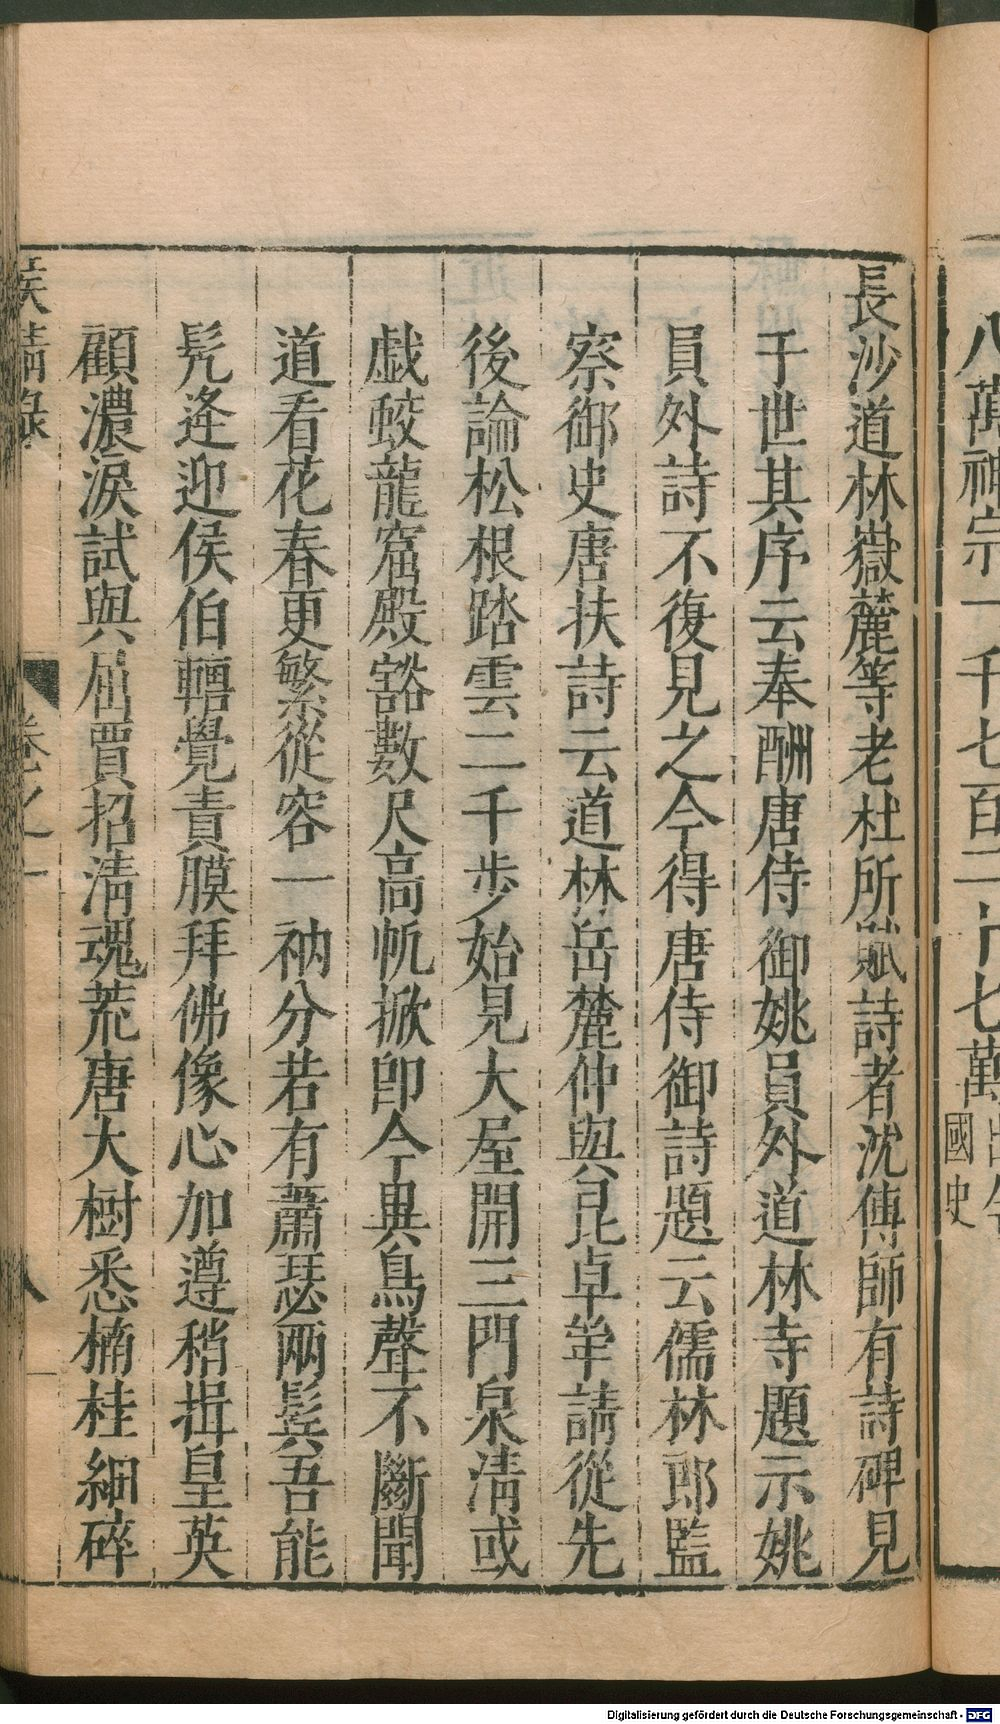 八萬神宗一千七百二十七萬
國史
長沙道林嶽麓等老杜所賦詩者沈傳師有詩碑見
于世其序云奉酬唐侍御姚員外道林寺題示姚
員外詩不復見之今得唐侍御詩題云儒林郎監
察御史唐扶詩云道林岳麓仲與昆卓犖請從先
後論松根踏雲二千步始見大屋開三門泉清或
戯蛟龍窟殿豁數尺高帆掀即今異鳥聲不斷聞
道看花春更繁從容一衲分若有蕭瑟兩鬂吾能
髠逄迎侯伯轉覺貴膜拜佛像心加遵稍揖皇英
顧濃淚試與屈賈招清魂荒唐大樹悉楠桂細碎
侯鯖錄
卷之一
八
Digitalisierung gefördert durch die Deutsche Forschungsgemeinschaft - DFG